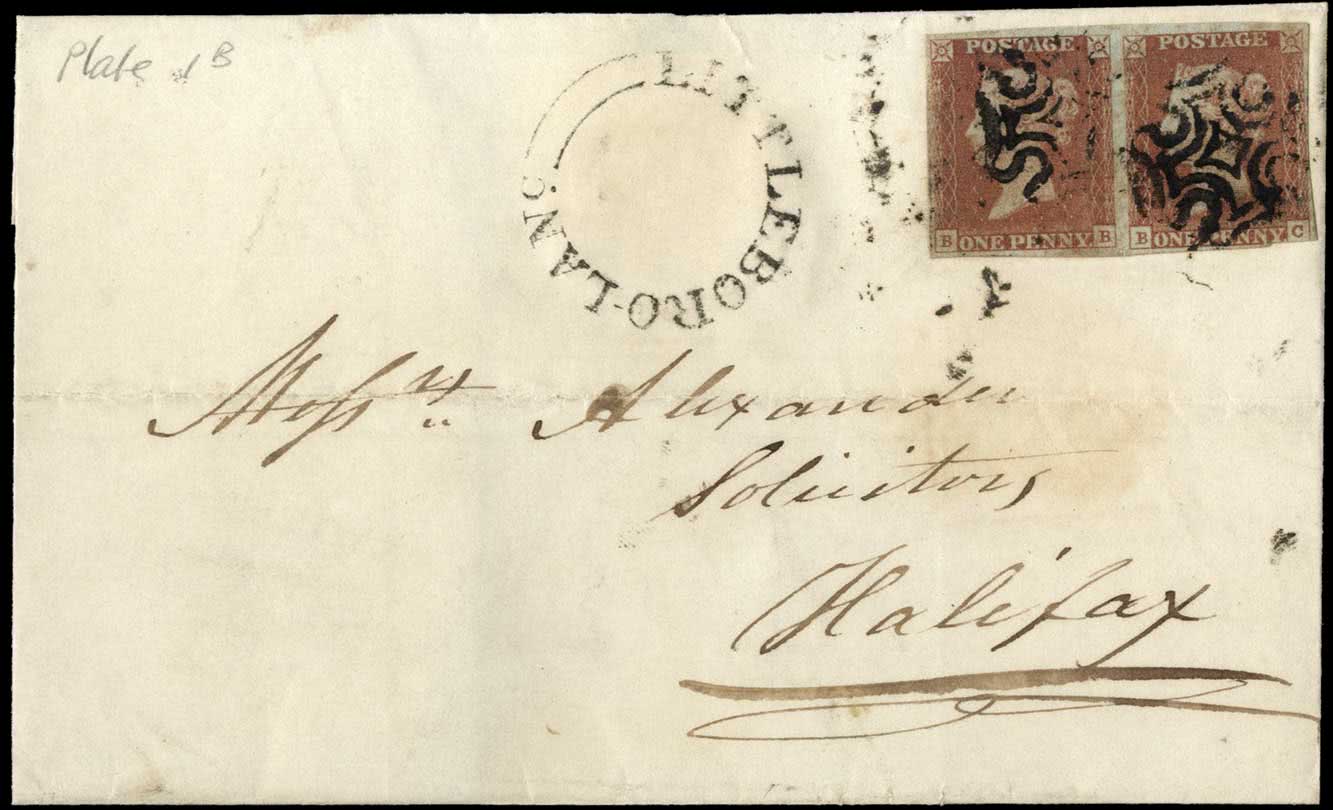 Plate 1B
LITTLEBORO-LANC
POSTAGE
B ONE PENNY B
POSTAGE
B ONE PENNY C
Messrs Alexander
Solicitors
Halifax